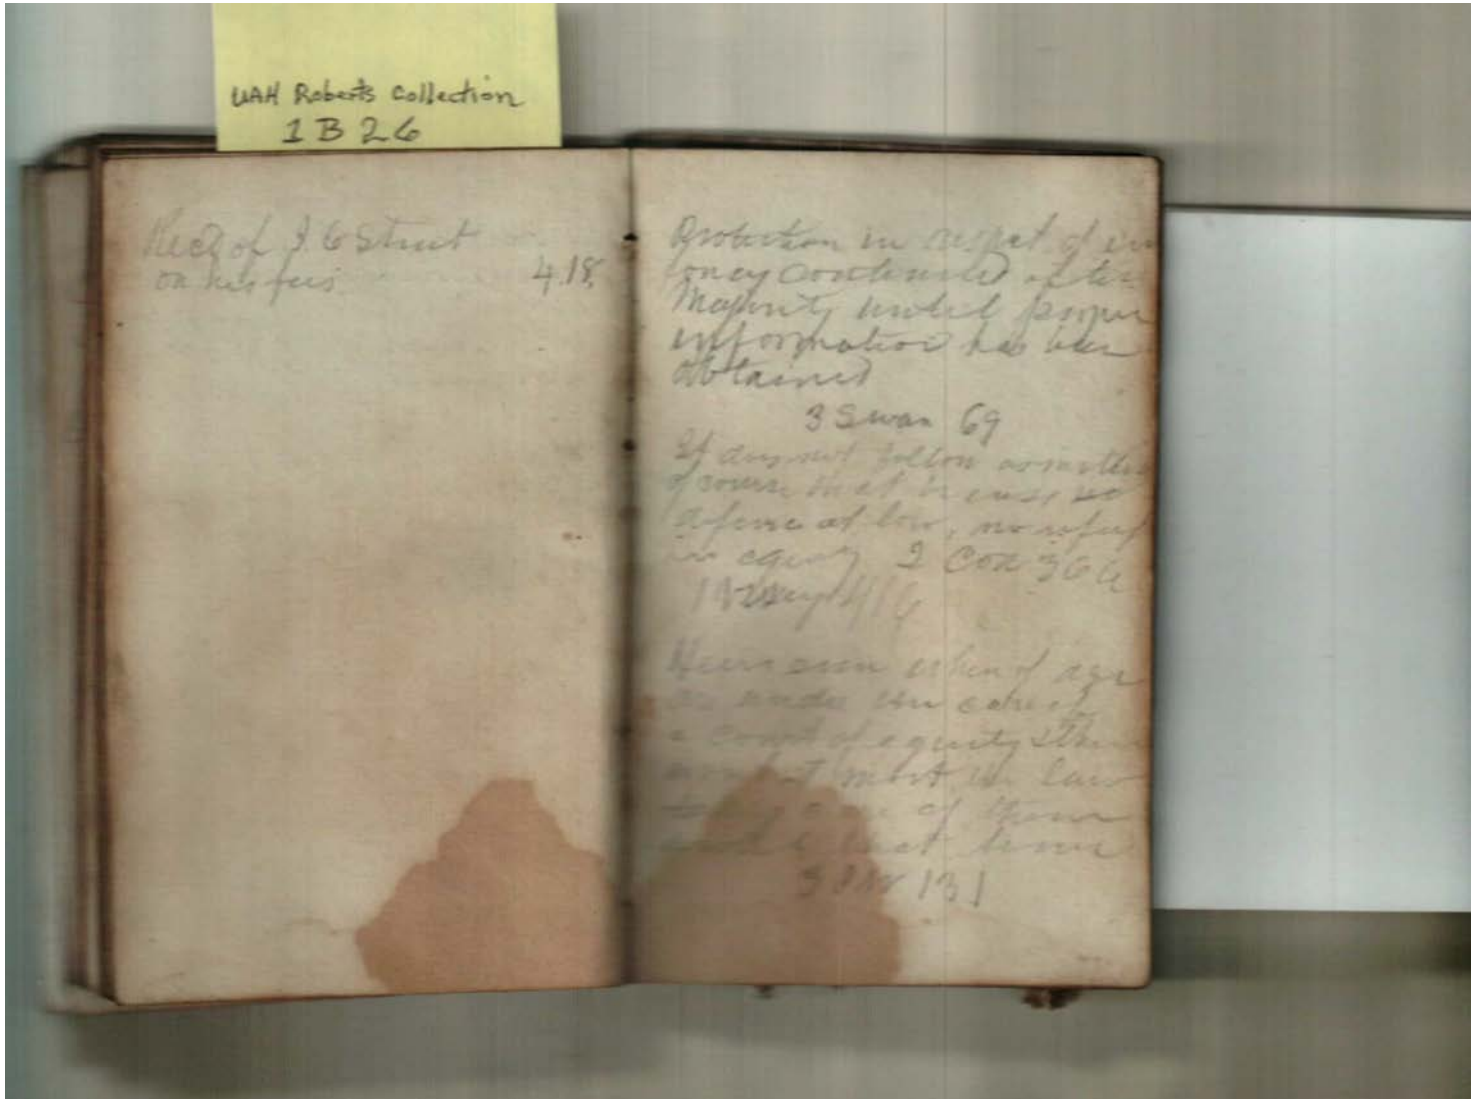 UAH Roberts Collection
1B26
Recd of J. C Street
on his fees 4.18
Protection in respect of in
fancy continued after
Majority until proper
information has been
obtained
3 Swan 69
It does not follow as matter
of course that because no
defense at law, no relief
in equity 2 Cox 366
416
Heirs even when of age
are under the care of
a Court of equity &
most in law
care of them
that time
131